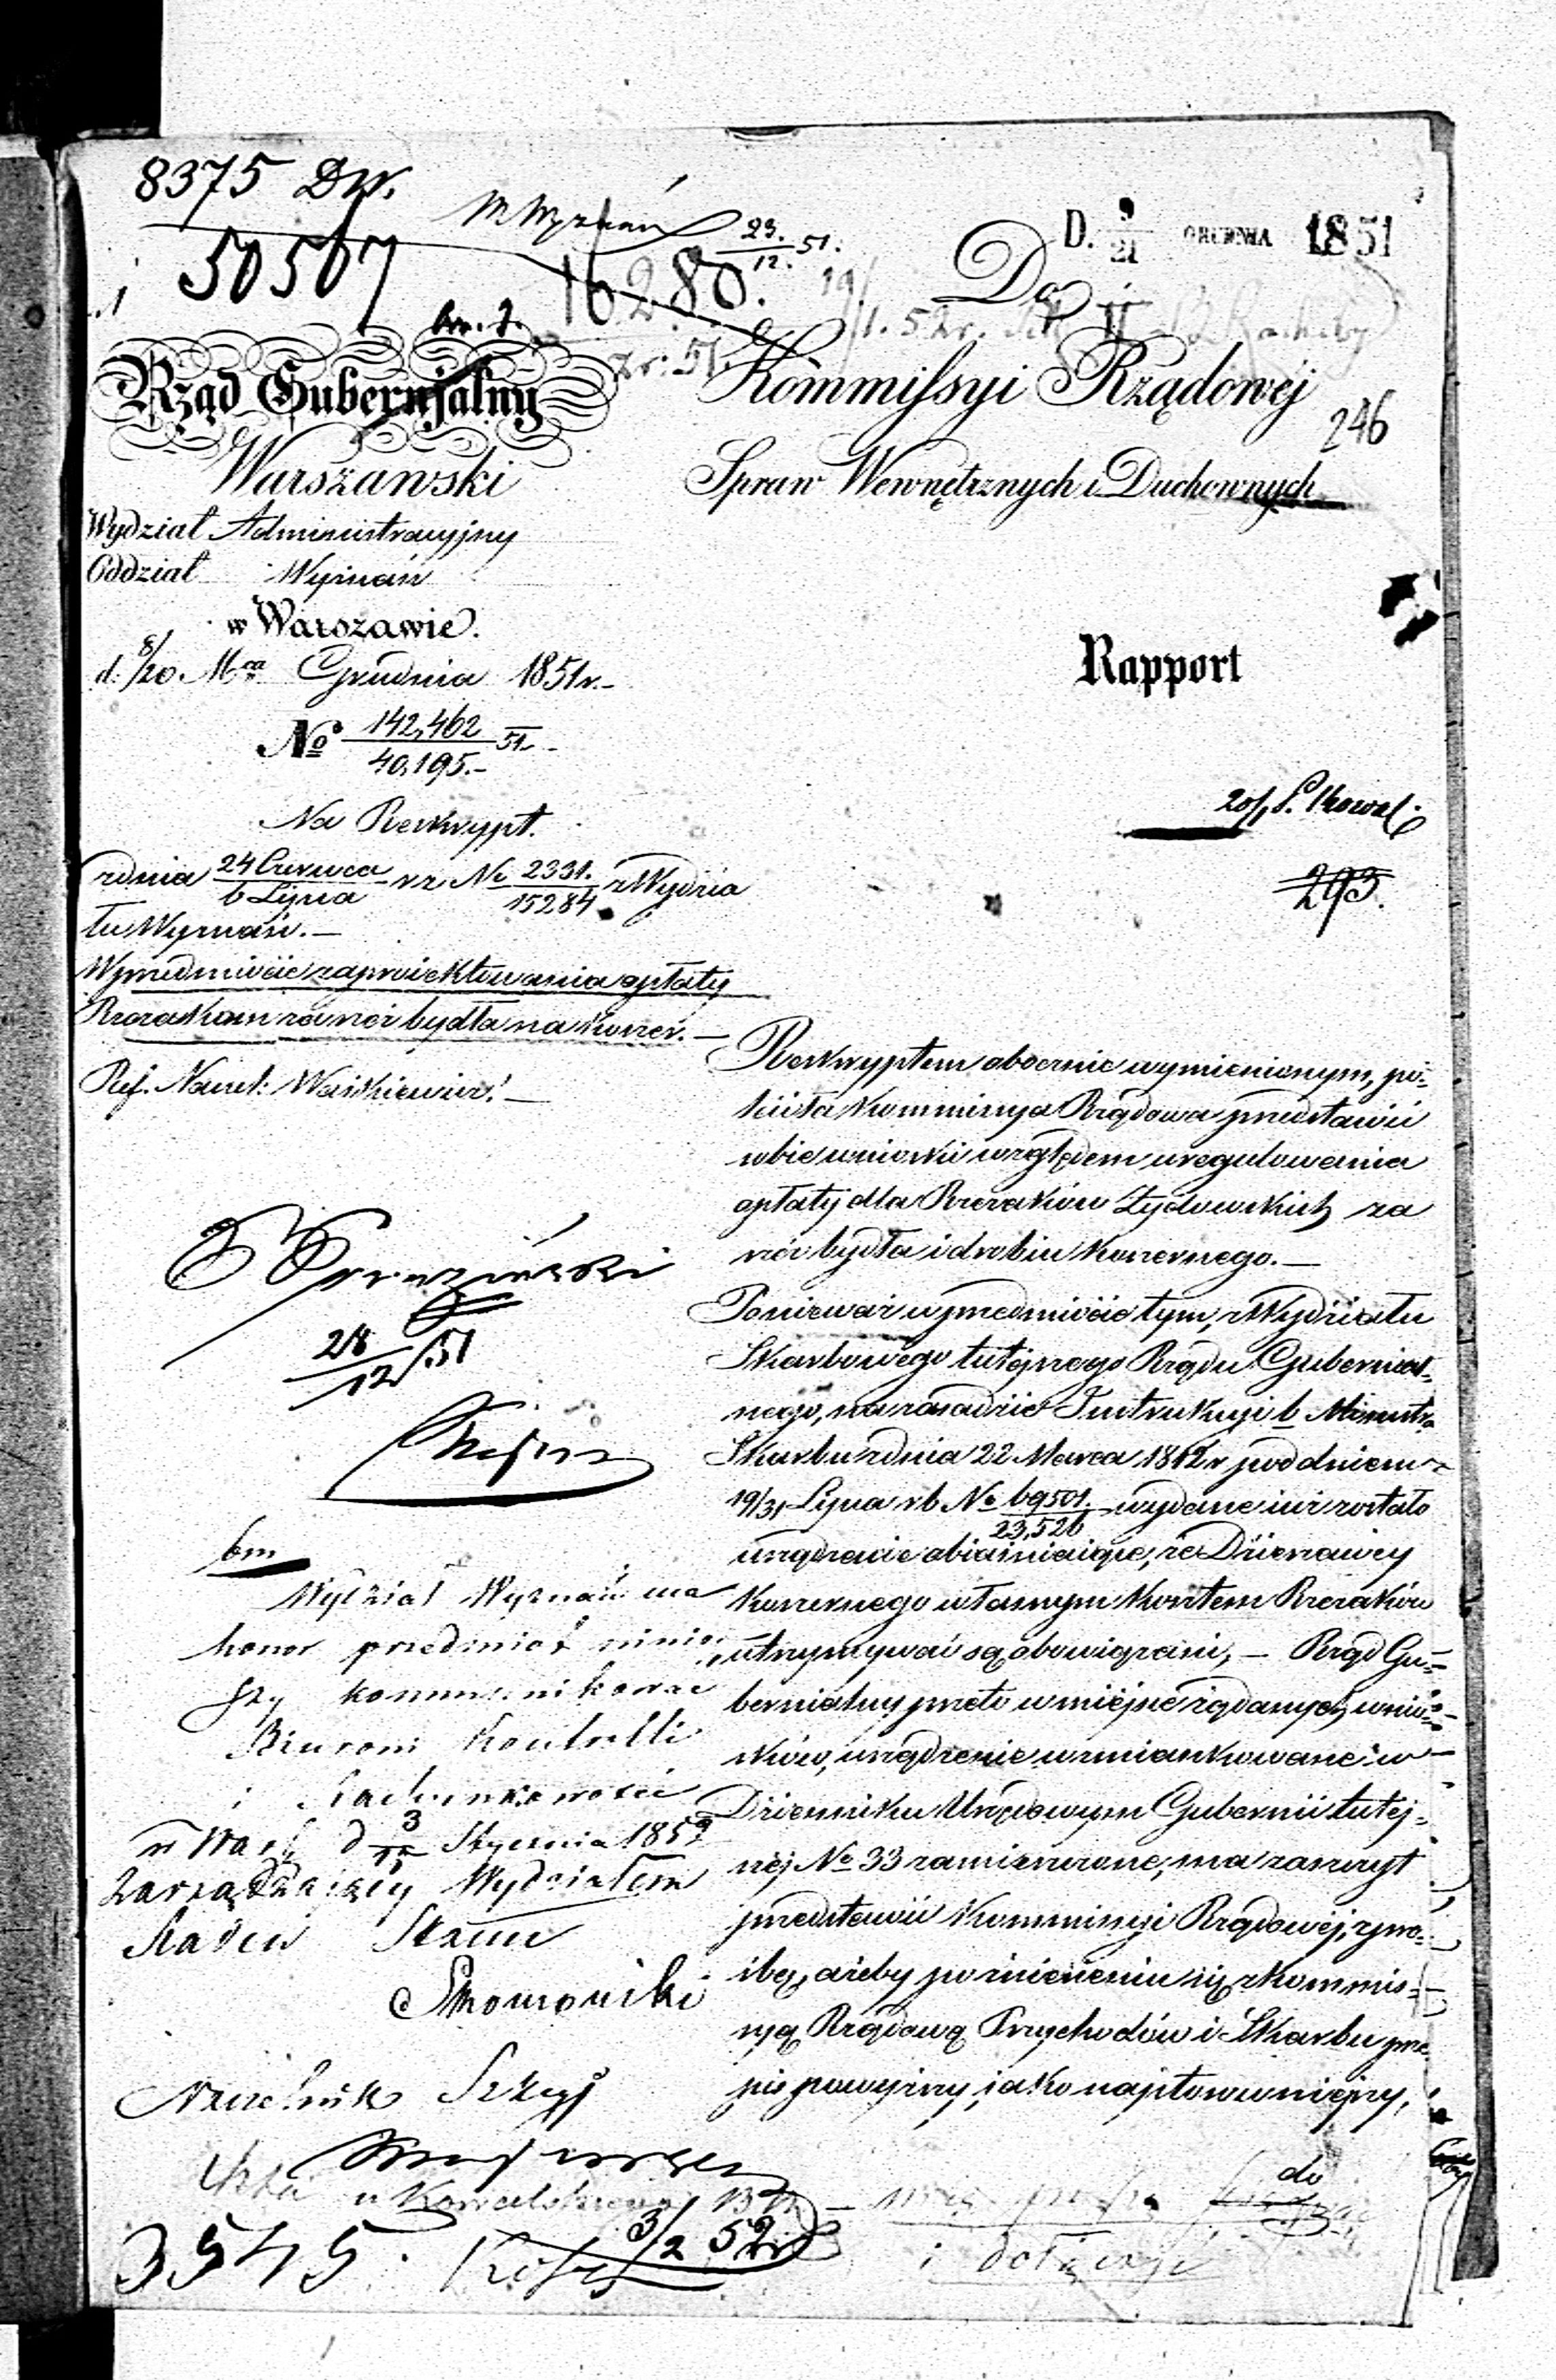 8375 Dw.
50507
M Wyznań
16280.
23./12. 51.
D. 9/21 GRUDNIA 1851
Do
Rząd Gubernjalny
Warszawski
Kommissyi Rządowej
Spraw Wewnętrznych i Duchownych
246
Wydział Administracyjny
Oddział Wyznań
w Warszawie.
d. 8/20. Mca Grudnia 1851 r.-
Rapport
No 142,462/40,195.- 51.-
Na Reskrypt.
z dnia 24 Czerwca/6 Lipca r z No 2331./15284 z Wydzia
łu Wyznań.-
W przedmiocie zaproiektowania opłaty
Rzezakom za rzeź bydła na koszer.-
Ref. Nacz: Waśkiewicz.-
293.
Reskryptem obocznie wymienionym, po-
leciła Kommissya Rządowa przedstawić
sobie wnioski względem uregulowania
opłaty dla Rzezaków Żydowskich za
rzeź bydła i drobiu koszernego.-
Ponieważ w przedmiocie tym, z Wydziału
Skarbowego tutejszego Rządu Gubernial-
nego, na zasadzie Instrukcyi b Ministra
Skarbu z dnia 22 Marca 1812 r pod dniem
19/31 Lipca r b No 69501./23,526 wydane iuż zostało
urządzenie obiaśniaiące, że Dzierżawcy
koszernego własnym kosztem Rzezaków
utrzymywać są obowiązani,- Rząd Gu-
bernialny przeto w miejsce żądanych wnios-
ków, urządzenie wzmiankowane w
Dzienniku Urzędowym Gubernii tutej-
szej No 33 zamieszczone, ma zaszczyt
przedstawić Kommissyi Rządowej, z proś-
bą, ażeby po zniesieniu się z Kommis-
syą Rządową Przychodów i Skarbu prze-
pis powyższy, iako najstosowniejszy,
28/12/51
Wydział Wyznań ma
honor przedmiot niniej
szy kommunikować
Biurom Kontrolli
i Rachunkowości
w Warsz d 3/15 Stycznia 1852
Zarządzający Wydziałem
Radca Stanu
Naczelnik Sekcyi
u Kowalskiego
3545.
3/2 52
do
i dołączyć